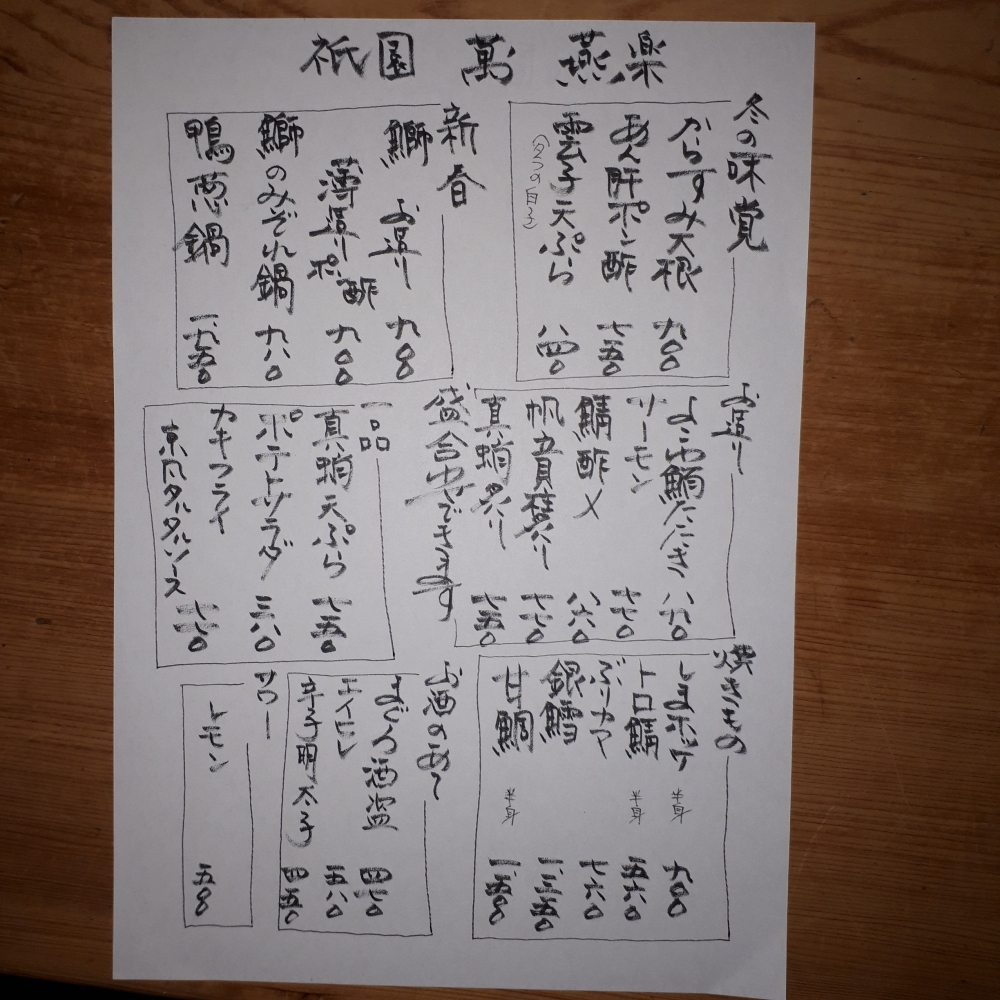 祇園 萬 燕楽
冬の味覚
からすみ大根 九〇〇
あん肝ポン酢 七五〇
雲子天ぷら 八四〇
(タラの白子)
新春
鰤 お造り 九〇〇
薄造りポン酢 九〇〇
鰤のみぞれ鍋 九八〇
鴨葱鍋 一、九五〇
お造り
よこわ鮪たたき 八九〇
サーモン 七七〇
鯖酢〆 八六〇
帆立貝柱炙り 七七〇
真蛸炙り 七五〇
盛合中せできます
一品
真蛸天ぷら 七五〇
ポテトサラダ 三八〇
カキフライ
京風タルタルソース 七七〇
焼きもの
しまホッケ 半身 九〇〇
トロ鯖 半身 五六〇
ぶりカマ 七六〇
銀鱈 一、三五〇
甘鯛 半身 一、五〇〇
お酒のあて
まぐろ酒盗 四七〇
エイヒレ 五八〇
辛子明太子 四五〇
サワー
レモン 五〇〇